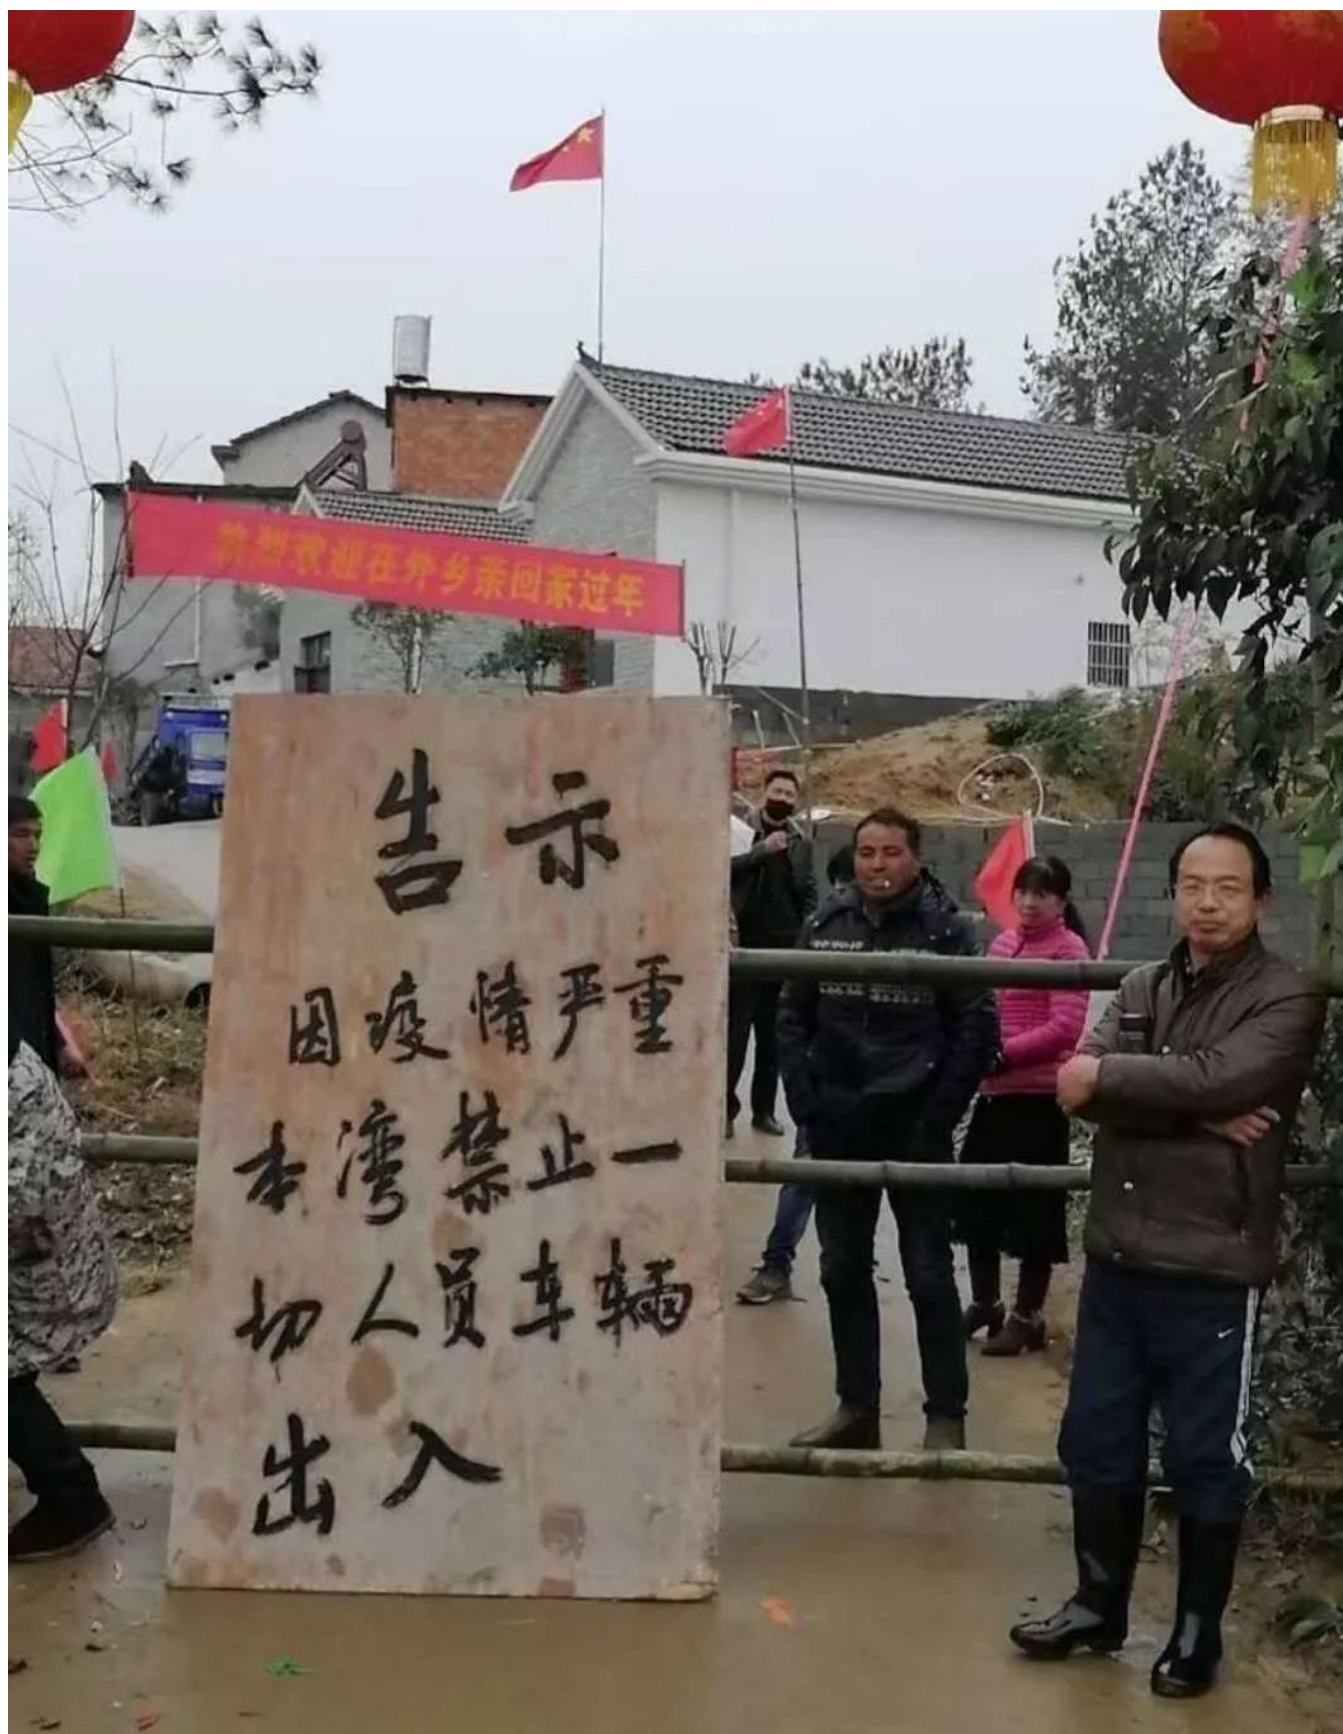 热烈欢迎在外乡亲回家过年
告示
因疫情严重
本湾禁止一
切人员车辆
出入